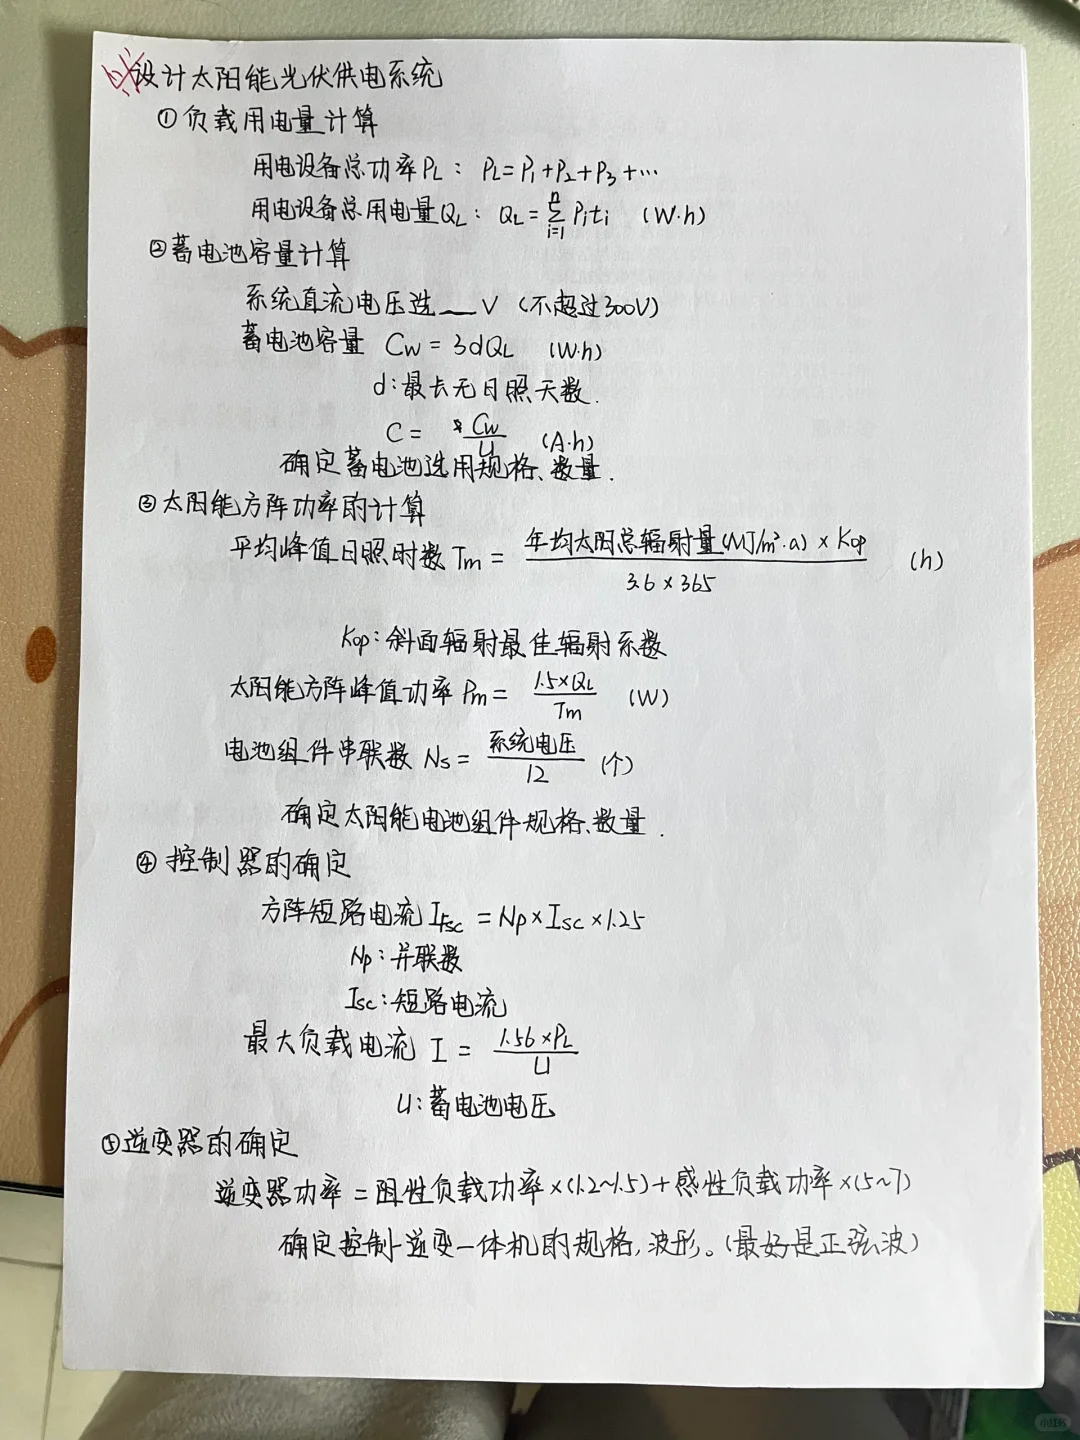 设计太阳能光伏供电系统
①负载用电量计算
用电设备总功率PL: PL=P1+P2+P3+…
用电设备总用电量QL: QL=∑(i=1→n) Piti (W·h)
②蓄电池容量计算
系统直流电压选__V (不超过300V)
蓄电池容量 Cw = 3dQL (W·h)
d:最长无日照天数.
C = Cw/U (A·h)
确定蓄电池选用规格、数量.
③太阳能方阵功率的计算
平均峰值日照时数Tm = 年均太阳总辐射量(MJ/m²·a)×Kop / 3.6×365 (h)
Kop:斜面辐射最佳辐射系数
太阳能方阵峰值功率Pm = 1.5×QL / Tm (W)
电池组件串联数 Ns = 系统电压 / 12 (个)
确定太阳能电池组件规格、数量.
④控制器的确定
方阵短路电流IFsc = Np×Isc×1.25
Np:并联数
Isc:短路电流
最大负载电流 I = 1.56×PL / U
U:蓄电池电压
⑤逆变器的确定
逆变器功率=阻性负载功率×(1.2~1.5)+感性负载功率×(5~7)
确定控制-逆变一体机的规格,波形。(最好是正弦波)
小红书